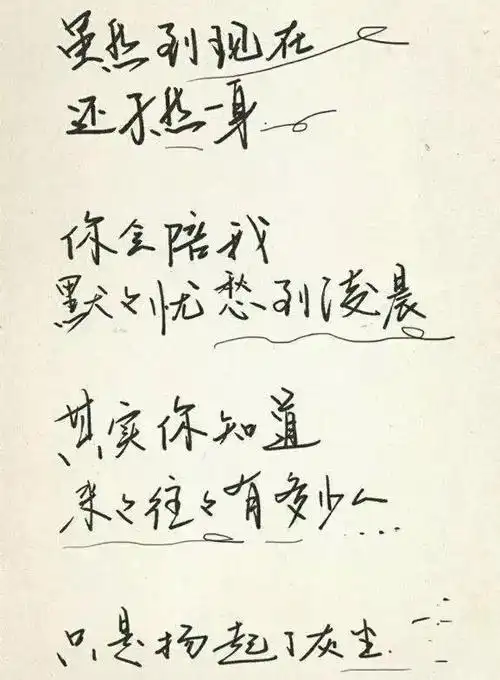 虽然到现在
还孑然一身
你会陪我
默々刂忧愁到凌晨
其实你知道
来々往々有多少人....
只是扬起了灰尘